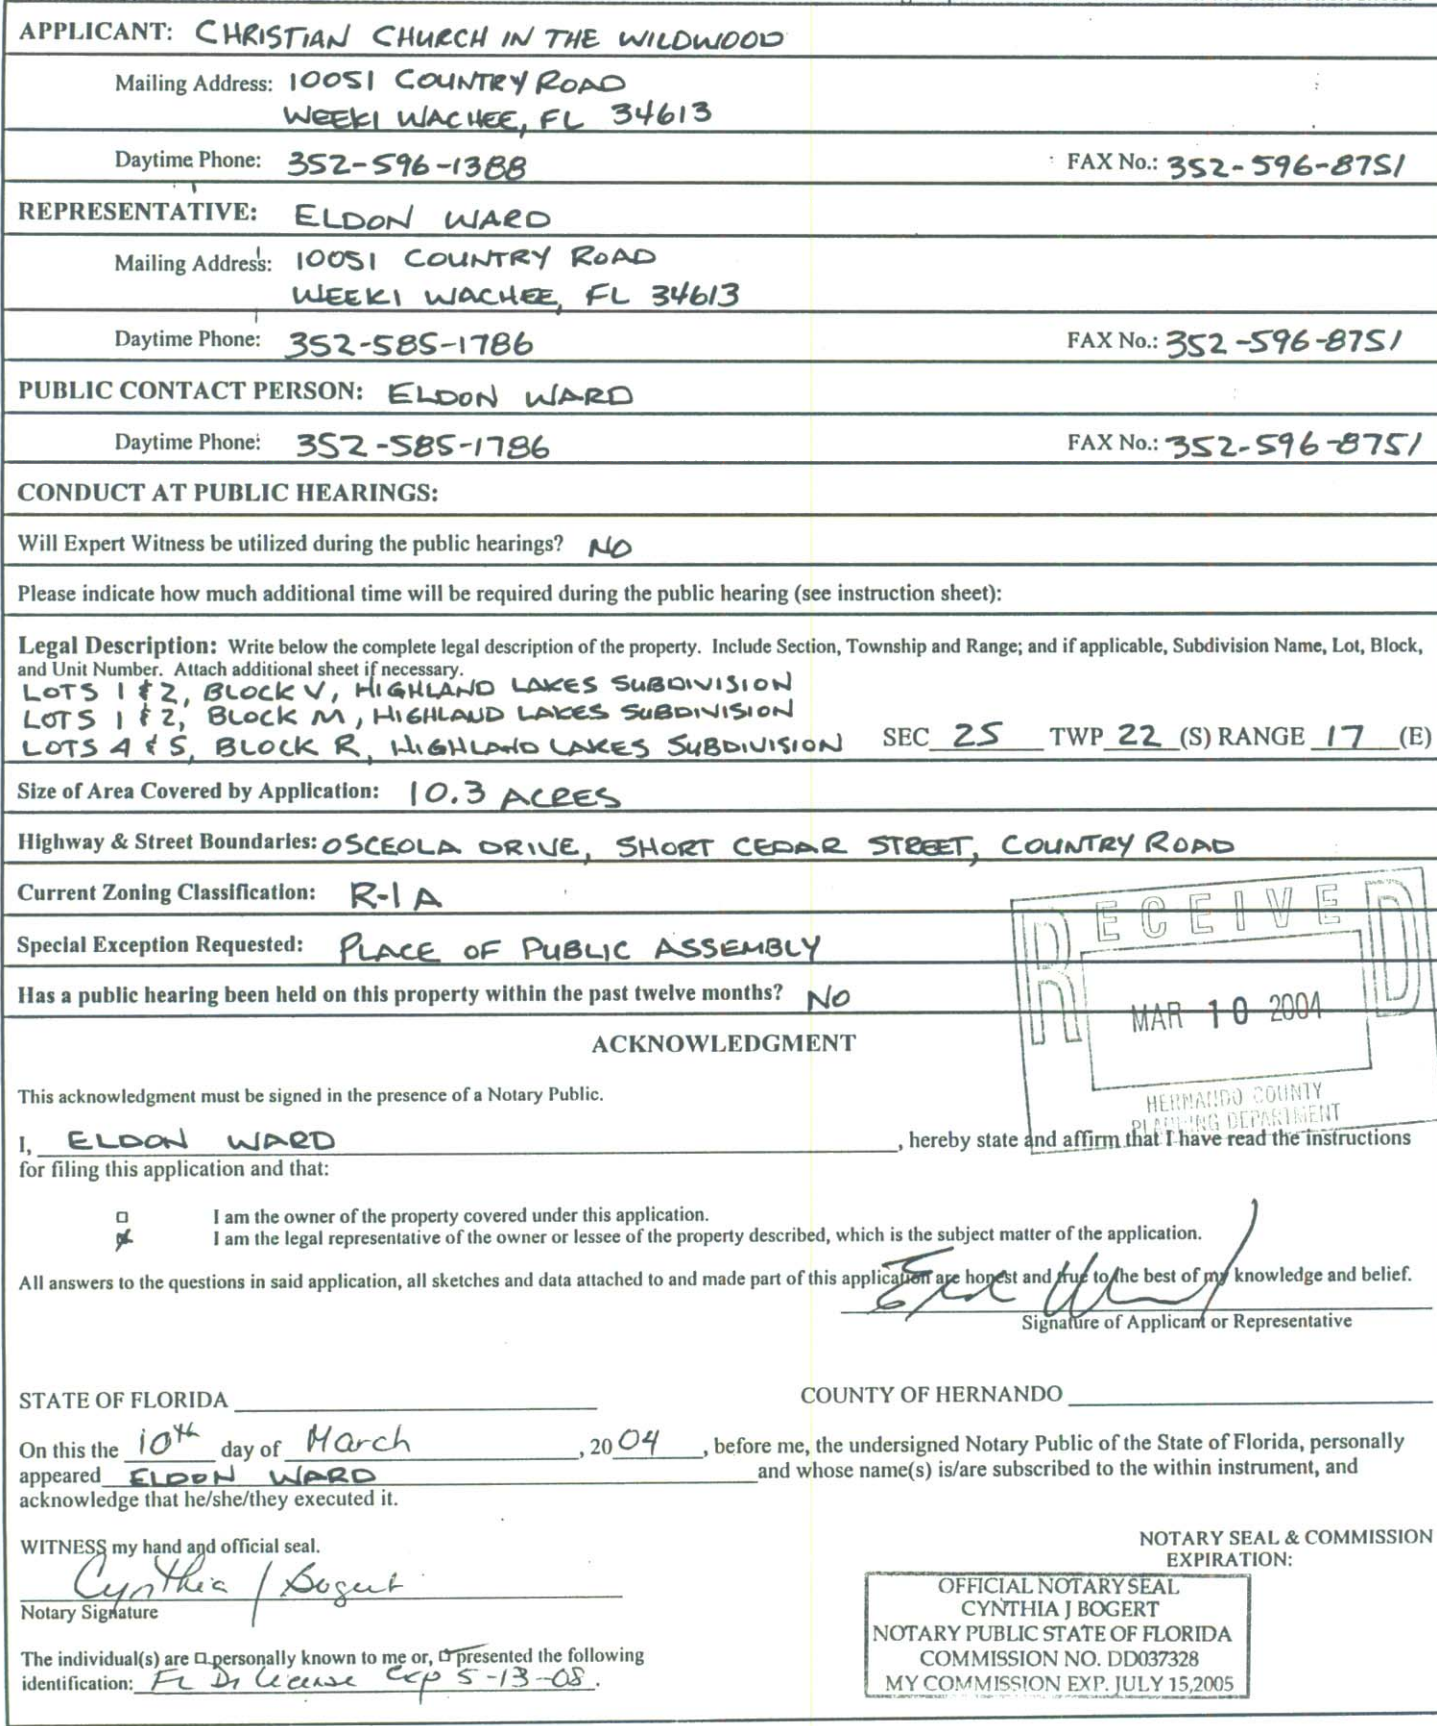 APPLICANT: CHRISTIAN CHURCH IN THE WILDWOOD
Mailing Address: 10051 COUNTRY ROAD
WEEKI WACHEE, FL 34613
Daytime Phone: 352-596-1388 FAX No.: 352-596-8751
REPRESENTATIVE: ELDON WARD
Mailing Address: 10051 COUNTRY ROAD
WEEKI WACHEE, FL 34613
Daytime Phone: 352-585-1786 FAX No.: 352-596-8751
PUBLIC CONTACT PERSON: ELDON WARD
Daytime Phone: 352-585-1786 FAX No.: 352-596-8751
CONDUCT AT PUBLIC HEARINGS:
Will Expert Witness be utilized during the public hearings? NO
Please indicate how much additional time will be required during the public hearing (see instruction sheet):
Legal Description: Write below the complete legal description of the property. Include Section, Township and Range; and if applicable, Subdivision Name, Lot, Block,
and Unit Number. Attach additional sheet if necessary.
LOTS 1 & 2, BLOCK V, HIGHLAND LAKES SUBDIVISION
LOTS 1 & 2, BLOCK M, HIGHLAND LAKES SUBDIVISION
LOTS 4 & 5, BLOCK R, HIGHLAND LAKES SUBDIVISION SEC 25 TWP 22 (S) RANGE 17 (E)
Size of Area Covered by Application: 10.3 ACRES
Highway & Street Boundaries: OSCEOLA DRIVE, SHORT CEDAR STREET, COUNTRY ROAD
Current Zoning Classification: R-1A
Special Exception Requested: PLACE OF PUBLIC ASSEMBLY
Has a public hearing been held on this property within the past twelve months? NO
RECEIVED
MAR 10 2004
HERNANDO COUNTY
PLANNING DEPARTMENT
ACKNOWLEDGMENT
This acknowledgment must be signed in the presence of a Notary Public.
I, ELDON WARD, hereby state and affirm that I have read the instructions
for filing this application and that:
I am the owner of the property covered under this application.
I am the legal representative of the owner or lessee of the property described, which is the subject matter of the application.
All answers to the questions in said application, all sketches and data attached to and made part of this application are honest and true to the best of my knowledge and belief.
Signature of Applicant or Representative
STATE OF FLORIDA COUNTY OF HERNANDO
On this the 10th day of March, 2004, before me, the undersigned Notary Public of the State of Florida, personally
appeared ELDON WARD and whose name(s) is/are subscribed to the within instrument, and
acknowledge that he/she/they executed it.
WITNESS my hand and official seal.
Cynthia J Bogert
Notary Signature
NOTARY SEAL & COMMISSION
EXPIRATION:
OFFICIAL NOTARY SEAL
CYNTHIA J BOGERT
NOTARY PUBLIC STATE OF FLORIDA
COMMISSION NO. DD037328
MY COMMISSION EXP. JULY 15,2005
The individual(s) are personally known to me or, presented the following
identification: FL Dr License exp 5-13-08.